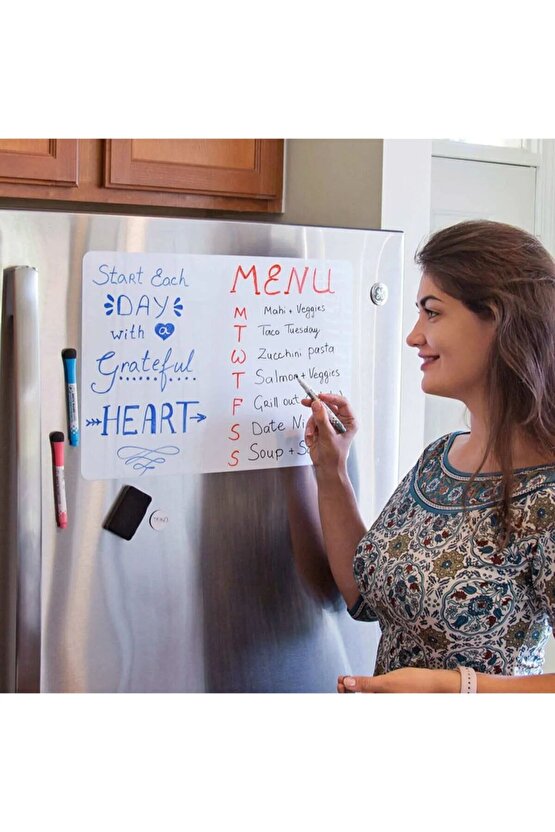 Start Each
DAY
with a
Grateful
HEART
MENU
M Mahi + Veggies
T Taco Tuesday
W Zucchini pasta
T Salmon + Veggies
F Grill out
S Date
S Soup +